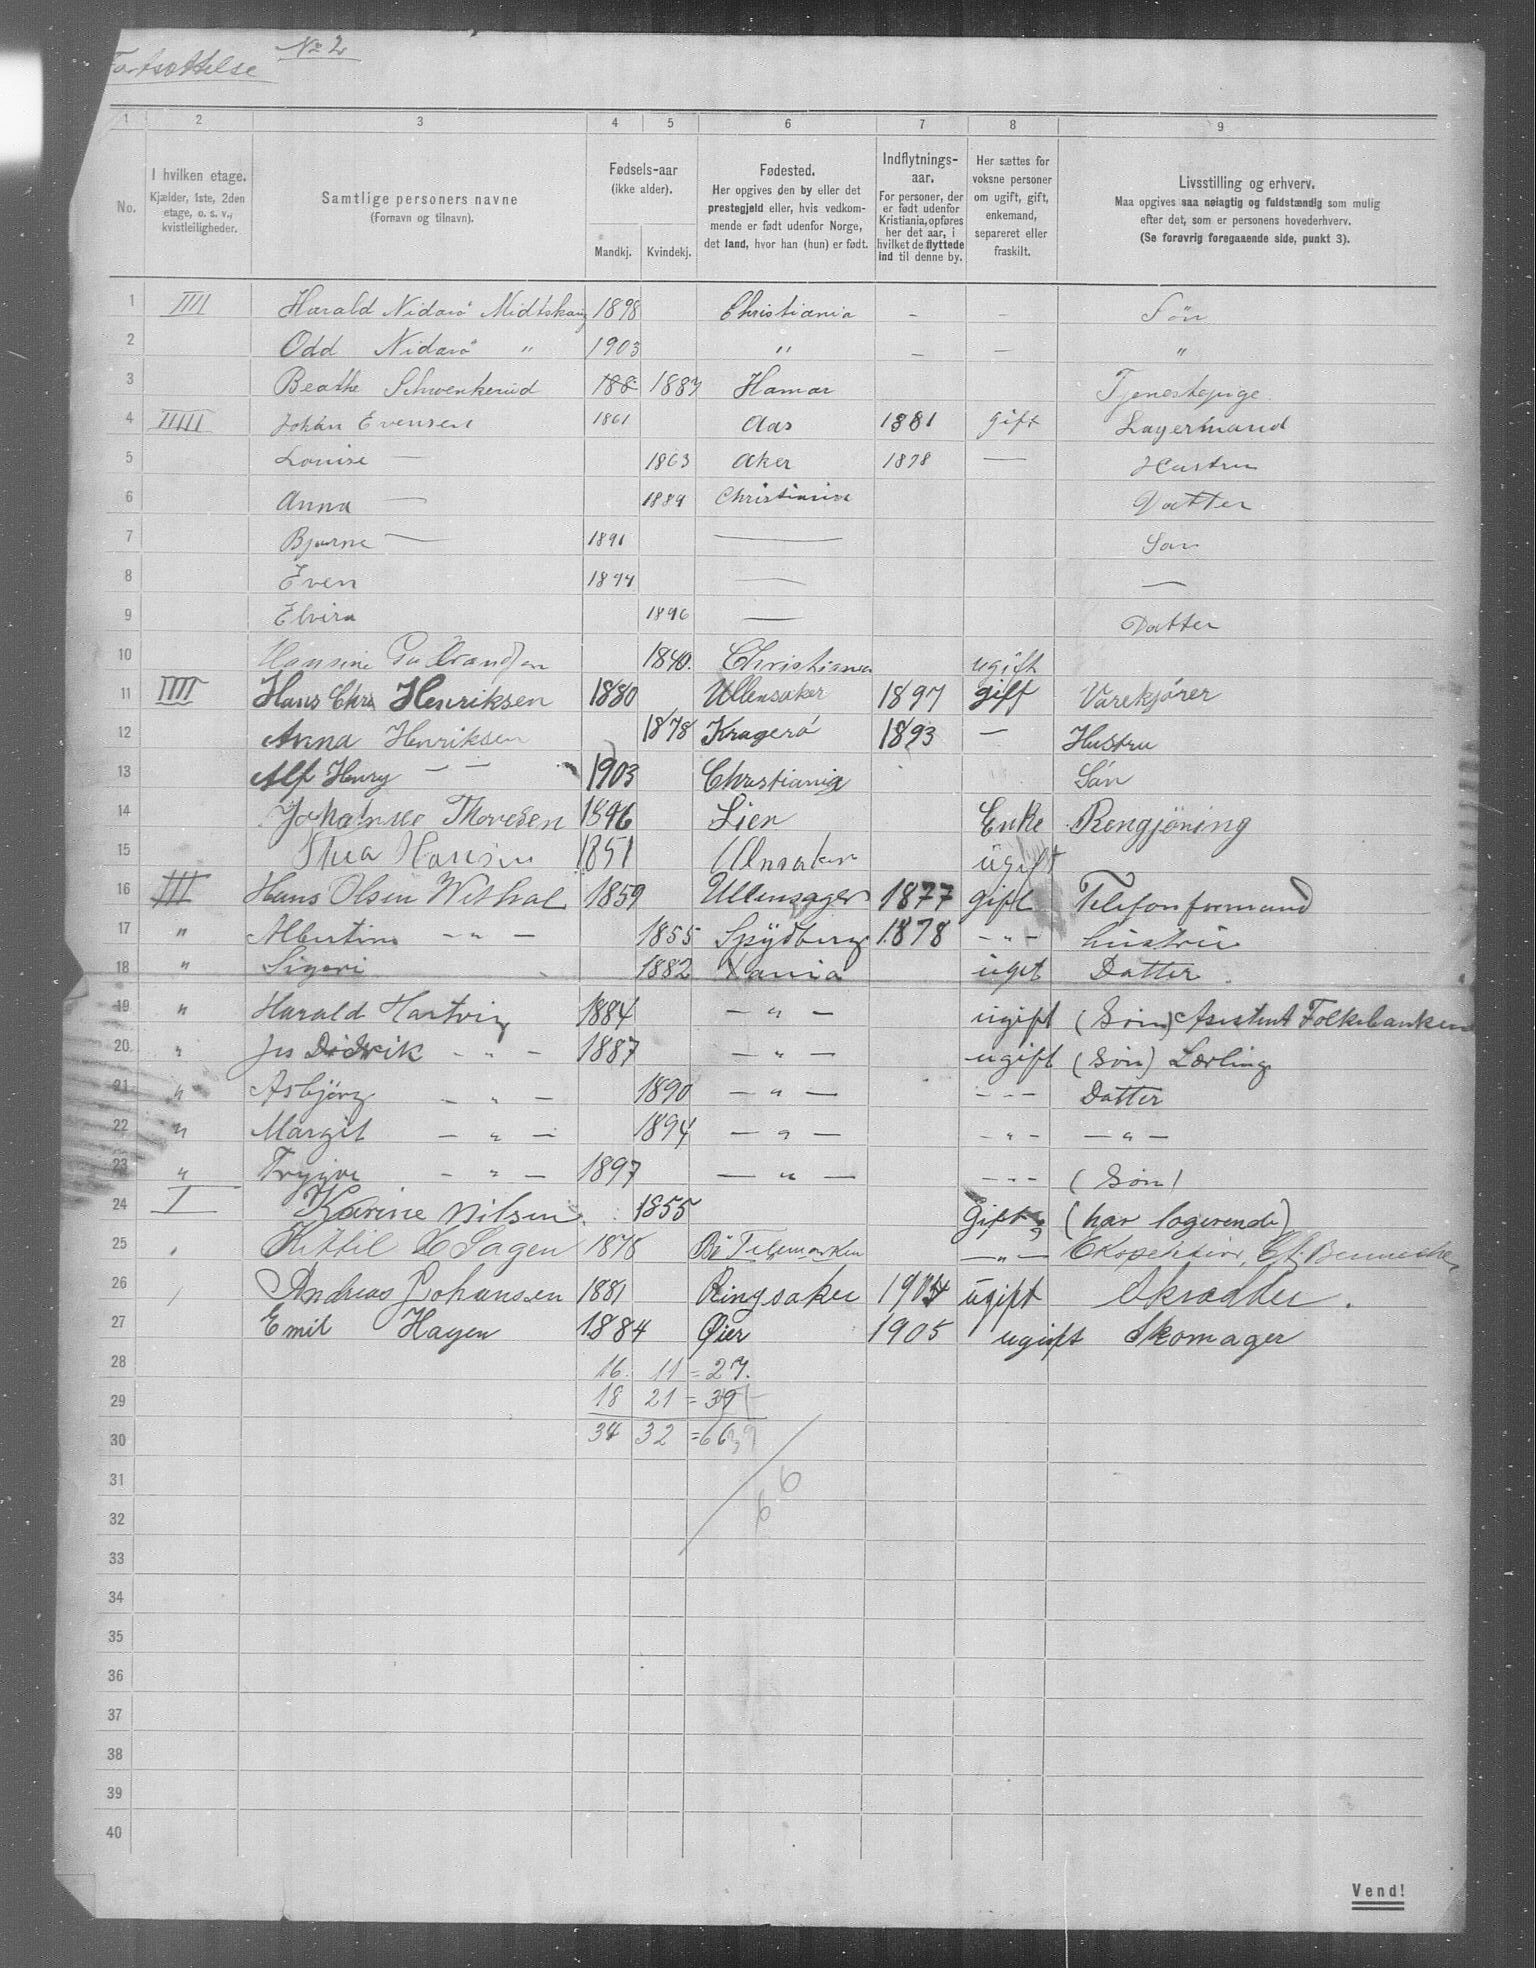 Fortsættelse No 2
1 2 3 4 5 6 7 8 9
No.
I hvilken etage.
Kjælder, 1ste, 2den
etage, o. s. v.,
kvistleiligheder.
Samtlige personers navne
(Fornavn og tilnavn).
Fødsels-aar
(ikke alder).
Mandkj. Kvindekj.
Fødested.
Her opgives den by eller det
prestegjeld eller, hvis vedkom-
mende er født udenfor Norge,
det land, hvor han (hun) er født.
Indflytnings-
aar.
For personer, der
er født udenfor
Kristiania, opføres
her det aar, i
hvilket de flyttede
ind til denne by.
Her sættes for
voksne personer
om ugift, gift,
enkemand,
separeret eller
fraskilt.
Livsstilling og erhverv.
Maa opgives saa nøiagtig og fuldstændig som mulig
efter det, som er personens hovederhverv.
(Se forøvrig foregaaende side, punkt 3).
1 IIII Harald Nidarö Midtskaug 1898 Christiania - - Sön
2 Odd Nidarö " 1903 " - - "
3 Beathe Schwenkerud 188 1887 Hamar Tjenestepige.
4 IIIII Johan Evensen 1861 Aas 1881 gift Lagermand
5 Louise — 1863 Aker 1878 — Hustru
6 Anna — 1889 Christiania Datter
7 Bjarne — 1891 — Søn
8 Even 1894 — —
9 Elvira 1896 — Datter
10 Hansine 1840. Christiania ugift
11 IIII Hans Chr. Henriksen 1880 Ullensaker 1897 gift Varekjører
12 Anna Henriksen 1878 Kragerö 1893 — Hustru
13 Alf Henry — — 1903 Christiania Sön
14 Thoresen 1846 Lier Enke Rengjöning
15 Hansen 1851 ugift
16 III Hans Olsen Withal 1859 Ullensager 1877 gift Telefonformand
17 " Albertine — " — 1855 Spydberg 1878 - " - hustru
18 " Sigvri 1882 Xania ugift Datter.
19 " Harald Hartvig 1884 — " — ugift (Sön) Assistent Folkebanken
20 " Jes Didrik - " - 1887 — " — ugift (Sön) Lærling
21 " Asbjörg — " — 1890 — " — - - - Datter
22 " Margit — " — 1894 — " — - " - — " —
23 " Trygve — " — 1897 — " — - - - (Sön)
24 I Karine Nilsen. 1855 Gift (har logerende)
25 Kittil K Sagen 1878 Bö Telemarken — " —
26 Andreas Johansen 1881 Ringsaker 1904 ugift Skrædder.
27 Emil Hagen 1884 Øier 1905 ugift Skomager
28 16. 11 = 27.
29 18 21 = 39
30 34 32 = 66
31 66
32
33
34
35
36
37
38
39
40
Vend!